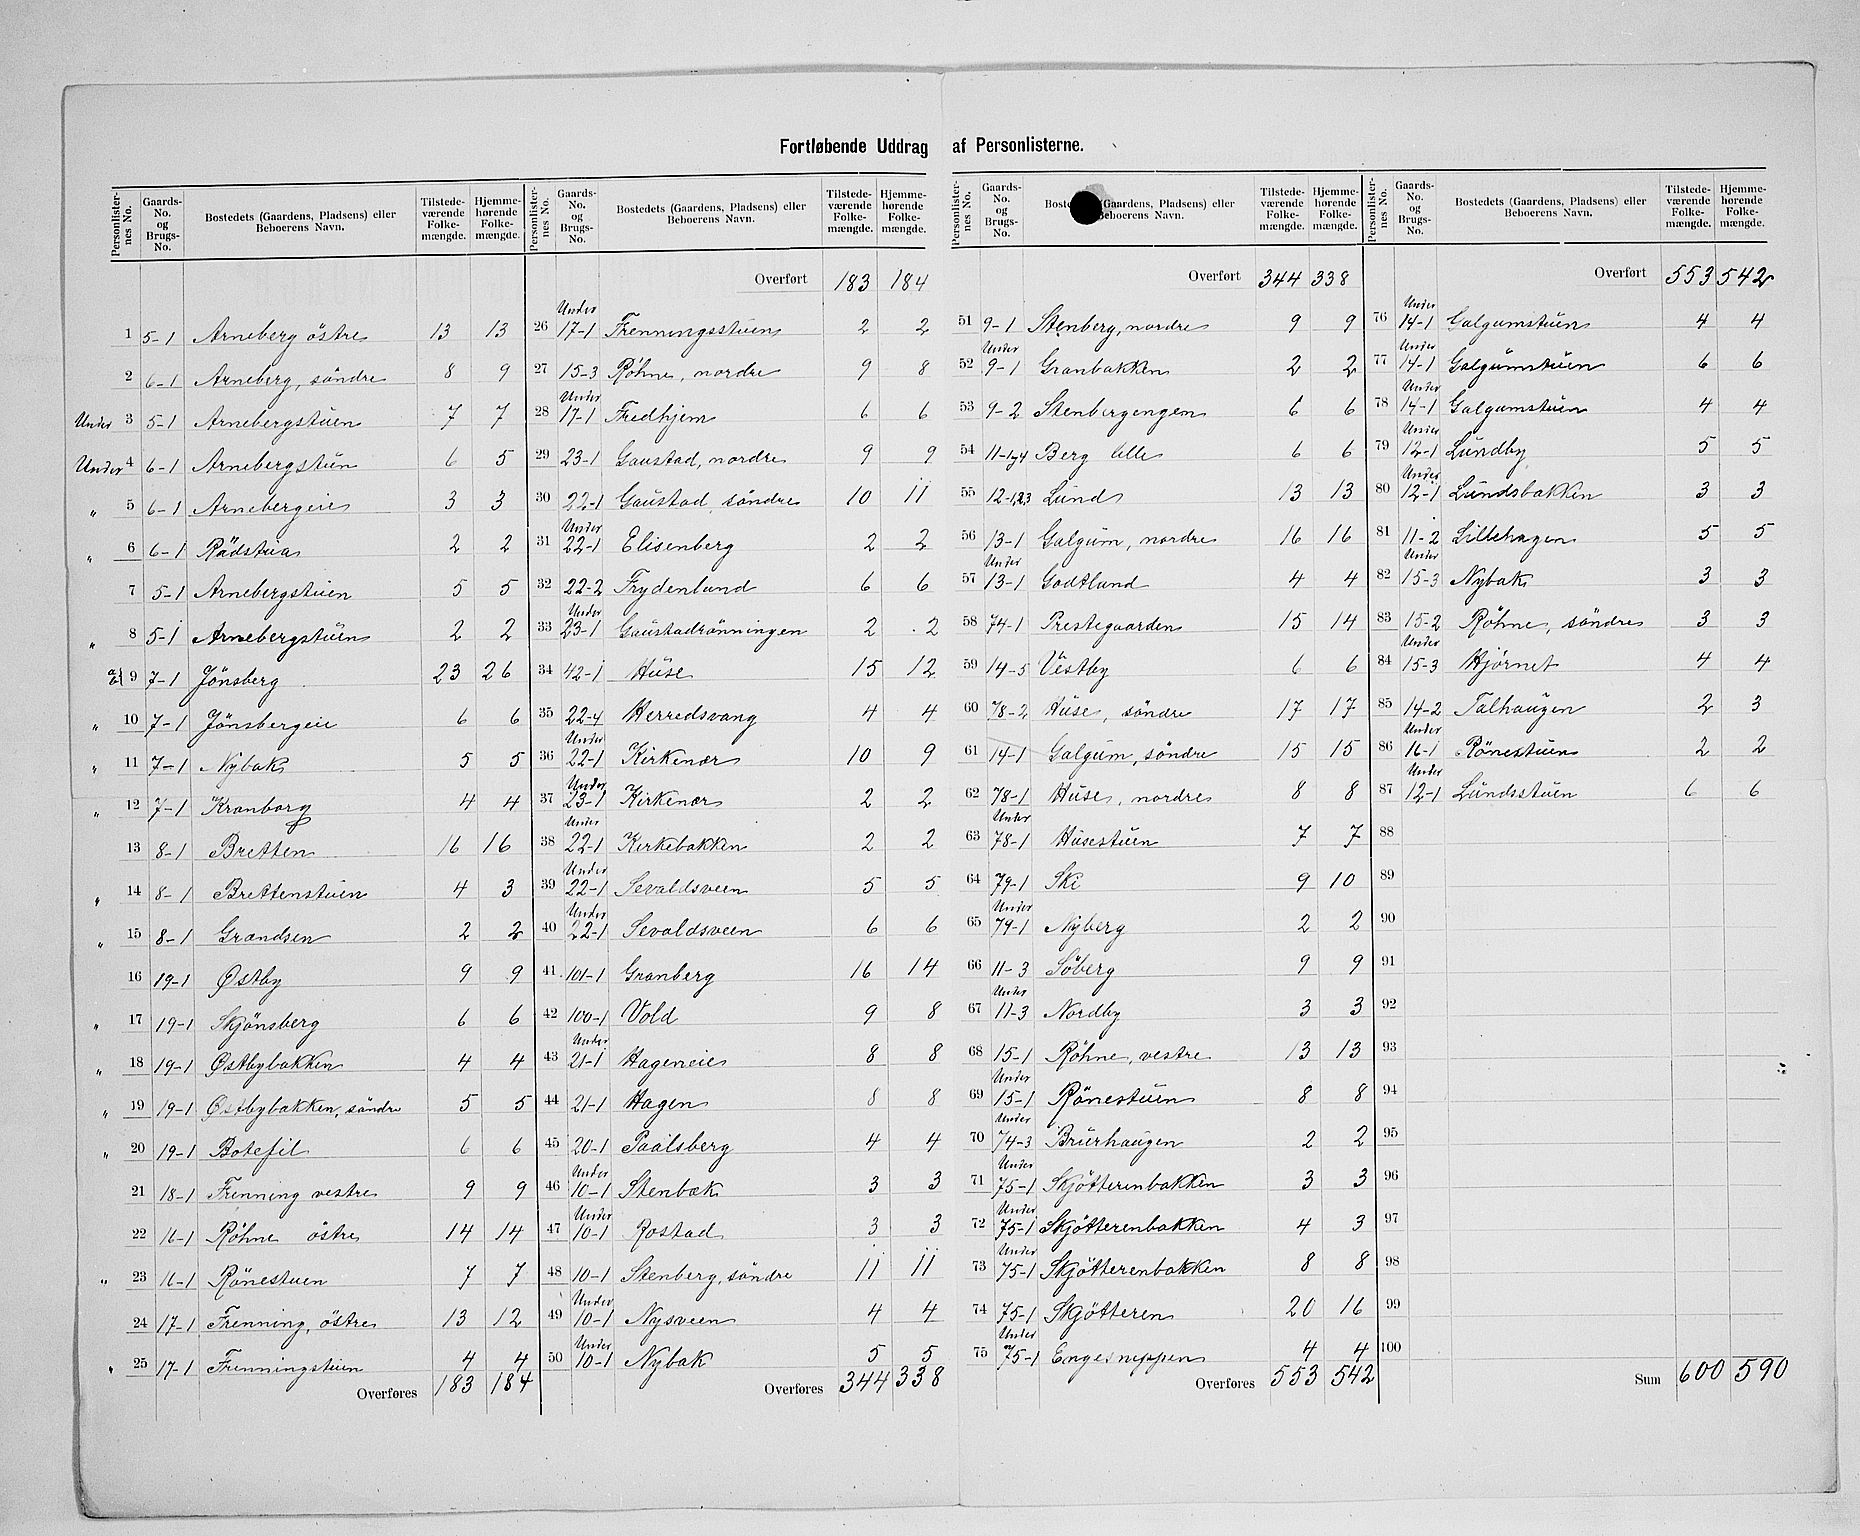 Fortløbende Uddrag af Personlisterne.
Personlister-nes No. | Gaards-No. og Brugs-No. | Bostedets (Gaardens, Pladsens) eller Beboerens Navn. | Tilstede-værende Folke-mængde. | Hjemme-hørende Folke-mængde.
1 5-1 Arneberg östre 13 13
2 6-1 Arneberg, söndre 8 9
Under 3 5-1 Arnebergstuen 7 7
Under 4 6-1 Arnebergstun 6 5
" 5 6-1 Arnebergeie 3 3
" 6 6-1 Rödstua 2 2
7 5-1 Arnebergstuen 5 5
" 8 5-1 Arnebergstuen 2 2
9 7-1 Jönsberg 23 26
" 10 7-1 Jönsbergeie 6 6
" 11 7-1 Nybak 5 5
" 12 7-1 Kronborg 4 4
13 8-1 Bretten 16 16
" 14 8-1 Brettenstuen 4 3
" 15 8-1 Grandsen 2 2
16 19-1 Østby 9 9
" 17 19-1 Skjönsberg 6 6
" 18 19-1 Østbybakken 4 4
" 19 19-1 Østbybakken, söndre 5 5
" 20 19-1 Botefil 6 6
21 18-1 Frenning vestre 9 9
22 16-1 Røhne östre 14 14
" 23 16-1 Rönestuen 7 7
24 17-1 Frenning, östre 13 12
" 25 17-1 Frenningstuen 4 4
Overføres 183 184
Personlister-nes No. | Gaards-No. og Brugs-No. | Bostedets (Gaardens, Pladsens) eller Beboerens Navn. | Tilstede-værende Folke-mængde. | Hjemme-hørende Folke-mængde.
Overført 183 184
26 Under 17-1 Frenningsstuen 2 2
27 15-3 Røhne, nordre 9 8
28 Under 17-1 Fredhjem 6 6
29 23-1 Gaustad, nordre 9 9
30 22-1 Gaustad, söndre 10 11
31 Under 22-1 Elisenberg 2 2
32 22-2 Frydenlund 6 6
33 Under 23-1 Gaustadrönningen 2 2
34 42-1 Huse 15 12
35 22-4 Herredsvang 4 4
36 Under 22-1 Kirkenær 10 9
37 Under 23-1 Kirkenær 2 2
38 Under 22-1 Kirkebakken 2 2
39 Under 22-1 Sevaldsveen 5 5
40 Under 22-1 Sevaldsveen 6 6
41 101-1 Granberg 16 14
42 100-1 Vold 9 8
43 Under 21-1 Hageneie 8 8
44 21-1 Hagen 8 8
45 20-1 Paalsberg 4 4
46 Under 10-1 Stenbak 3 3
47 Under 10-1 Rostad 3 3
48 10-1 Stenberg, söndre 11 11
49 Under 10-1 Nysveen 4 4
50 Under 10-1 Nybak 5 5
Overføres 344 338
Personlister-nes No. | Gaards-No. og Brugs-No. | Bostedets (Gaardens, Pladsens) eller Beboerens Navn. | Tilstede-værende Folke-mængde. | Hjemme-hørende Folke-mængde.
Overført 344 338
51 9-1 Stenberg, nordre 9 9
52 Under 9-1 Granbakken 2 2
53 9-2 Stenbergengen 6 6
54 11-1 Berg lille 6 6
55 12-1,2,3 Lund 13 13
56 13-1 Galgum, nordre 16 16
57 Under 13-1 Godtlund 4 4
58 74-1 Prestegaarden 15 14
59 14-5 Vestby 6 6
60 78-2 Huse, söndre 17 17
61 14-1 Galgum, söndre 15 15
62 78-1 Huse, nordre 8 8
63 Under 78-1 Husestuen 7 7
64 79-1 Ski 9 10
65 Under 79-1 Nyberg 2 2
66 11-3 Söberg 9 9
67 Under 11-3 Nordby 3 3
68 15-1 Røhne, vestre 13 13
69 Under 15-1 Rönestuen 8 8
70 Under 74-3 Brurhaugen 2 2
71 Under 75-1 Skjötterenbakken 3 3
72 Under 75-1 Skjötterenbakken 4 3
73 Under 75-1 Skjötterenbakken 8 8
74 75-1 Skjötteren 20 16
75 Under 75-1 Engesneppen 4 4
Overføres 553 542
Personlister-nes No. | Gaards-No. og Brugs-No. | Bostedets (Gaardens, Pladsens) eller Beboerens Navn. | Tilstede-værende Folke-mængde. | Hjemme-hørende Folke-mængde.
Overført 553 542
76 Under 14-1 Galgumstuen 4 4
77 Under 14-1 Galgumstuen 6 6
78 Under 14-1 Galgumstuen 4 4
79 Under 12-1 Lundby 5 5
80 Under 12-1 Lundsbakken 3 3
81 11-2 Lillehagen 5 5
82 Under 15-3 Nybak 3 3
83 15-2 Røhne, söndre 3 3
84 Under 15-3 Hjørnet 4 4
85 14-2 Talhaugen 2 3
86 Under 16-1 Rönestuen 2 2
87 Under 12-1 Lundsstuen 6 6
88
89
90
91
92
93
94
95
96
97
98
99
100
Sum 600 590